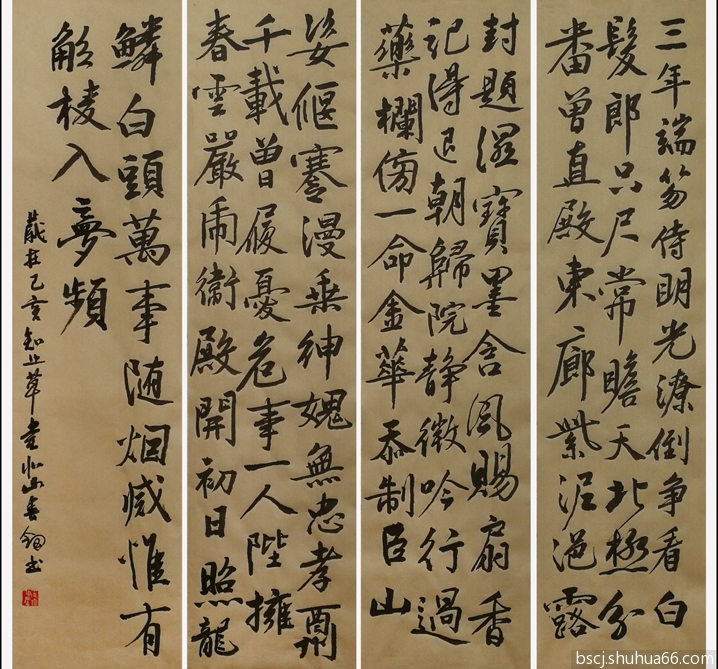 三年端笏侍明光潦倒争看白
髮郎只尺常瞻天北極分
番曾直殿東廊紫泥浥露
封題濕寶墨含風賜扇香
記得退朝歸院静微吟行過
藥欄傍一命金華忝制臣山
姿偃蹇漫垂紳媿無忠孝酬
千載曾履憂危事一人陛擁
春雲嚴虎衛殿開初日照龍
鱗白頭萬事随烟滅惟有
觚棱入夢頻
歲在乙亥知止草堂北山书
bscj.shuhua66.com